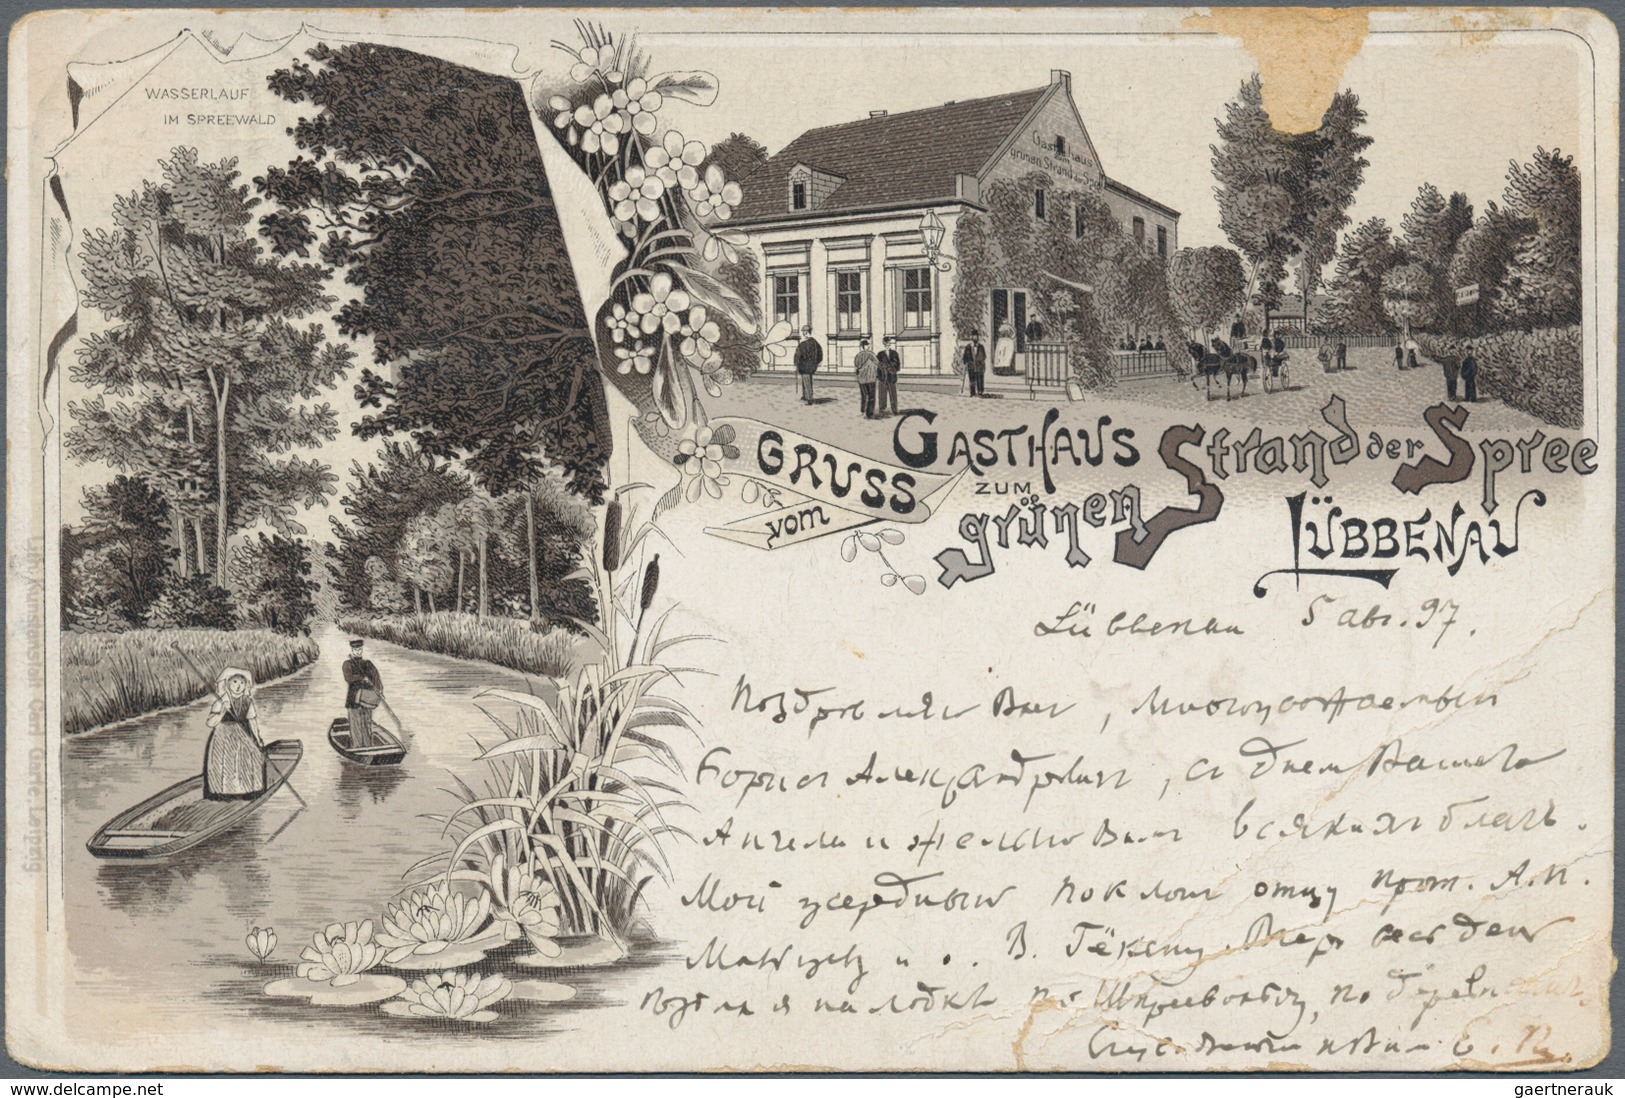 WASSERLAUF
IM SPREEWALD
Gasthaus
zum
grünen Strand d. Spree
GRUSS
vom
GASTHAUS
ZUM
grünen Strand der Spree
LÜBBENAU
Lübbenau 5 авг. 97.
Поздравляю Вас, Многоуважаемый
Борис Александрович, съ днем Вашего
Ангела и желаю Вам всяких благъ.
Мой усердный поклон отцу прот. А.П.
и В. Вчера весь день
ездил я на лодкѣ по Шпреевальду, по
Е. П.
Lith. Kunstanstalt Carl Garte, Leipzig
gaertnerauk
delcampe.net